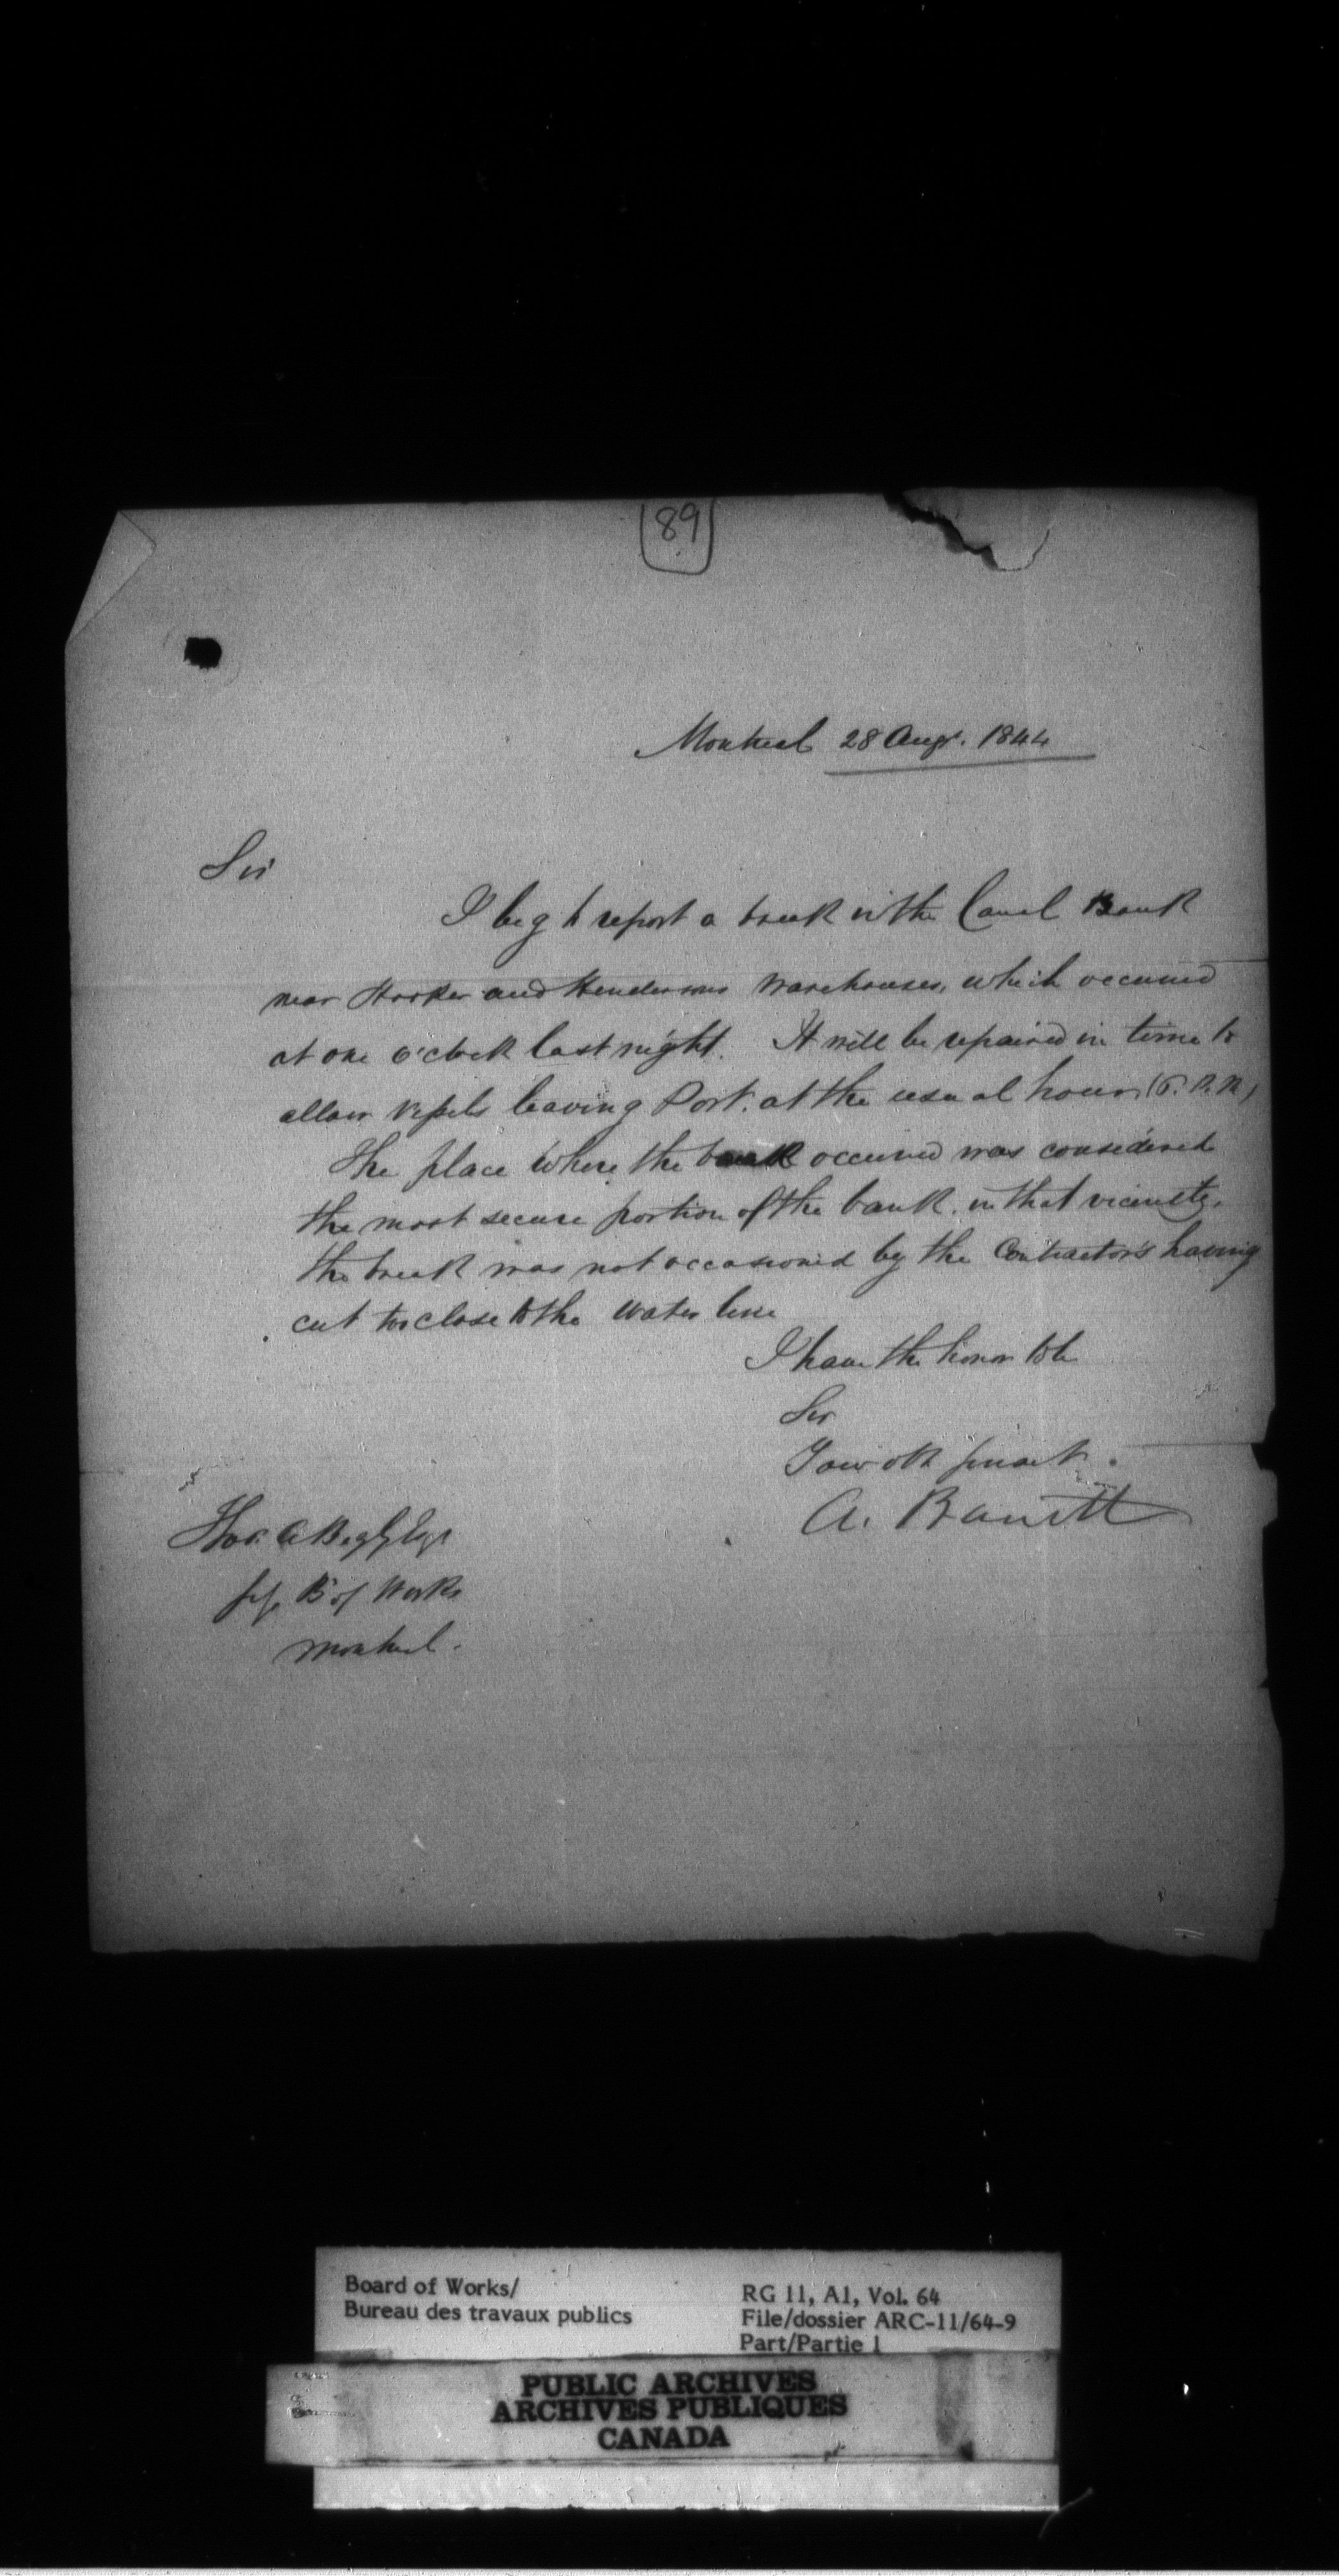 89
Montreal 28 Augt. 1844
Sir
I beg to report a break in the Canal Bank
near Hooker and Hendersons Warehouses, which occurred
at one o'clock last night. It will be repaired in time to
allow vessels leaving Port. at the usual hour
The place where the break occurred was considered
the most secure portion of the bank in that vicinity.
the break was not occasioned by the Contractor's having
cut too close to the water line
I have the honor to be
Sir
Your ob servant.
A. Barrett
Thos. A Begly Esqr
Secy B of Works
Montreal.
Board of Works/
Bureau des travaux publics
RG 11, A1, Vol. 64
File/dossier ARC-11/64-9
Part/Partie 1
PUBLIC ARCHIVES
ARCHIVES PUBLIQUES
CANADA